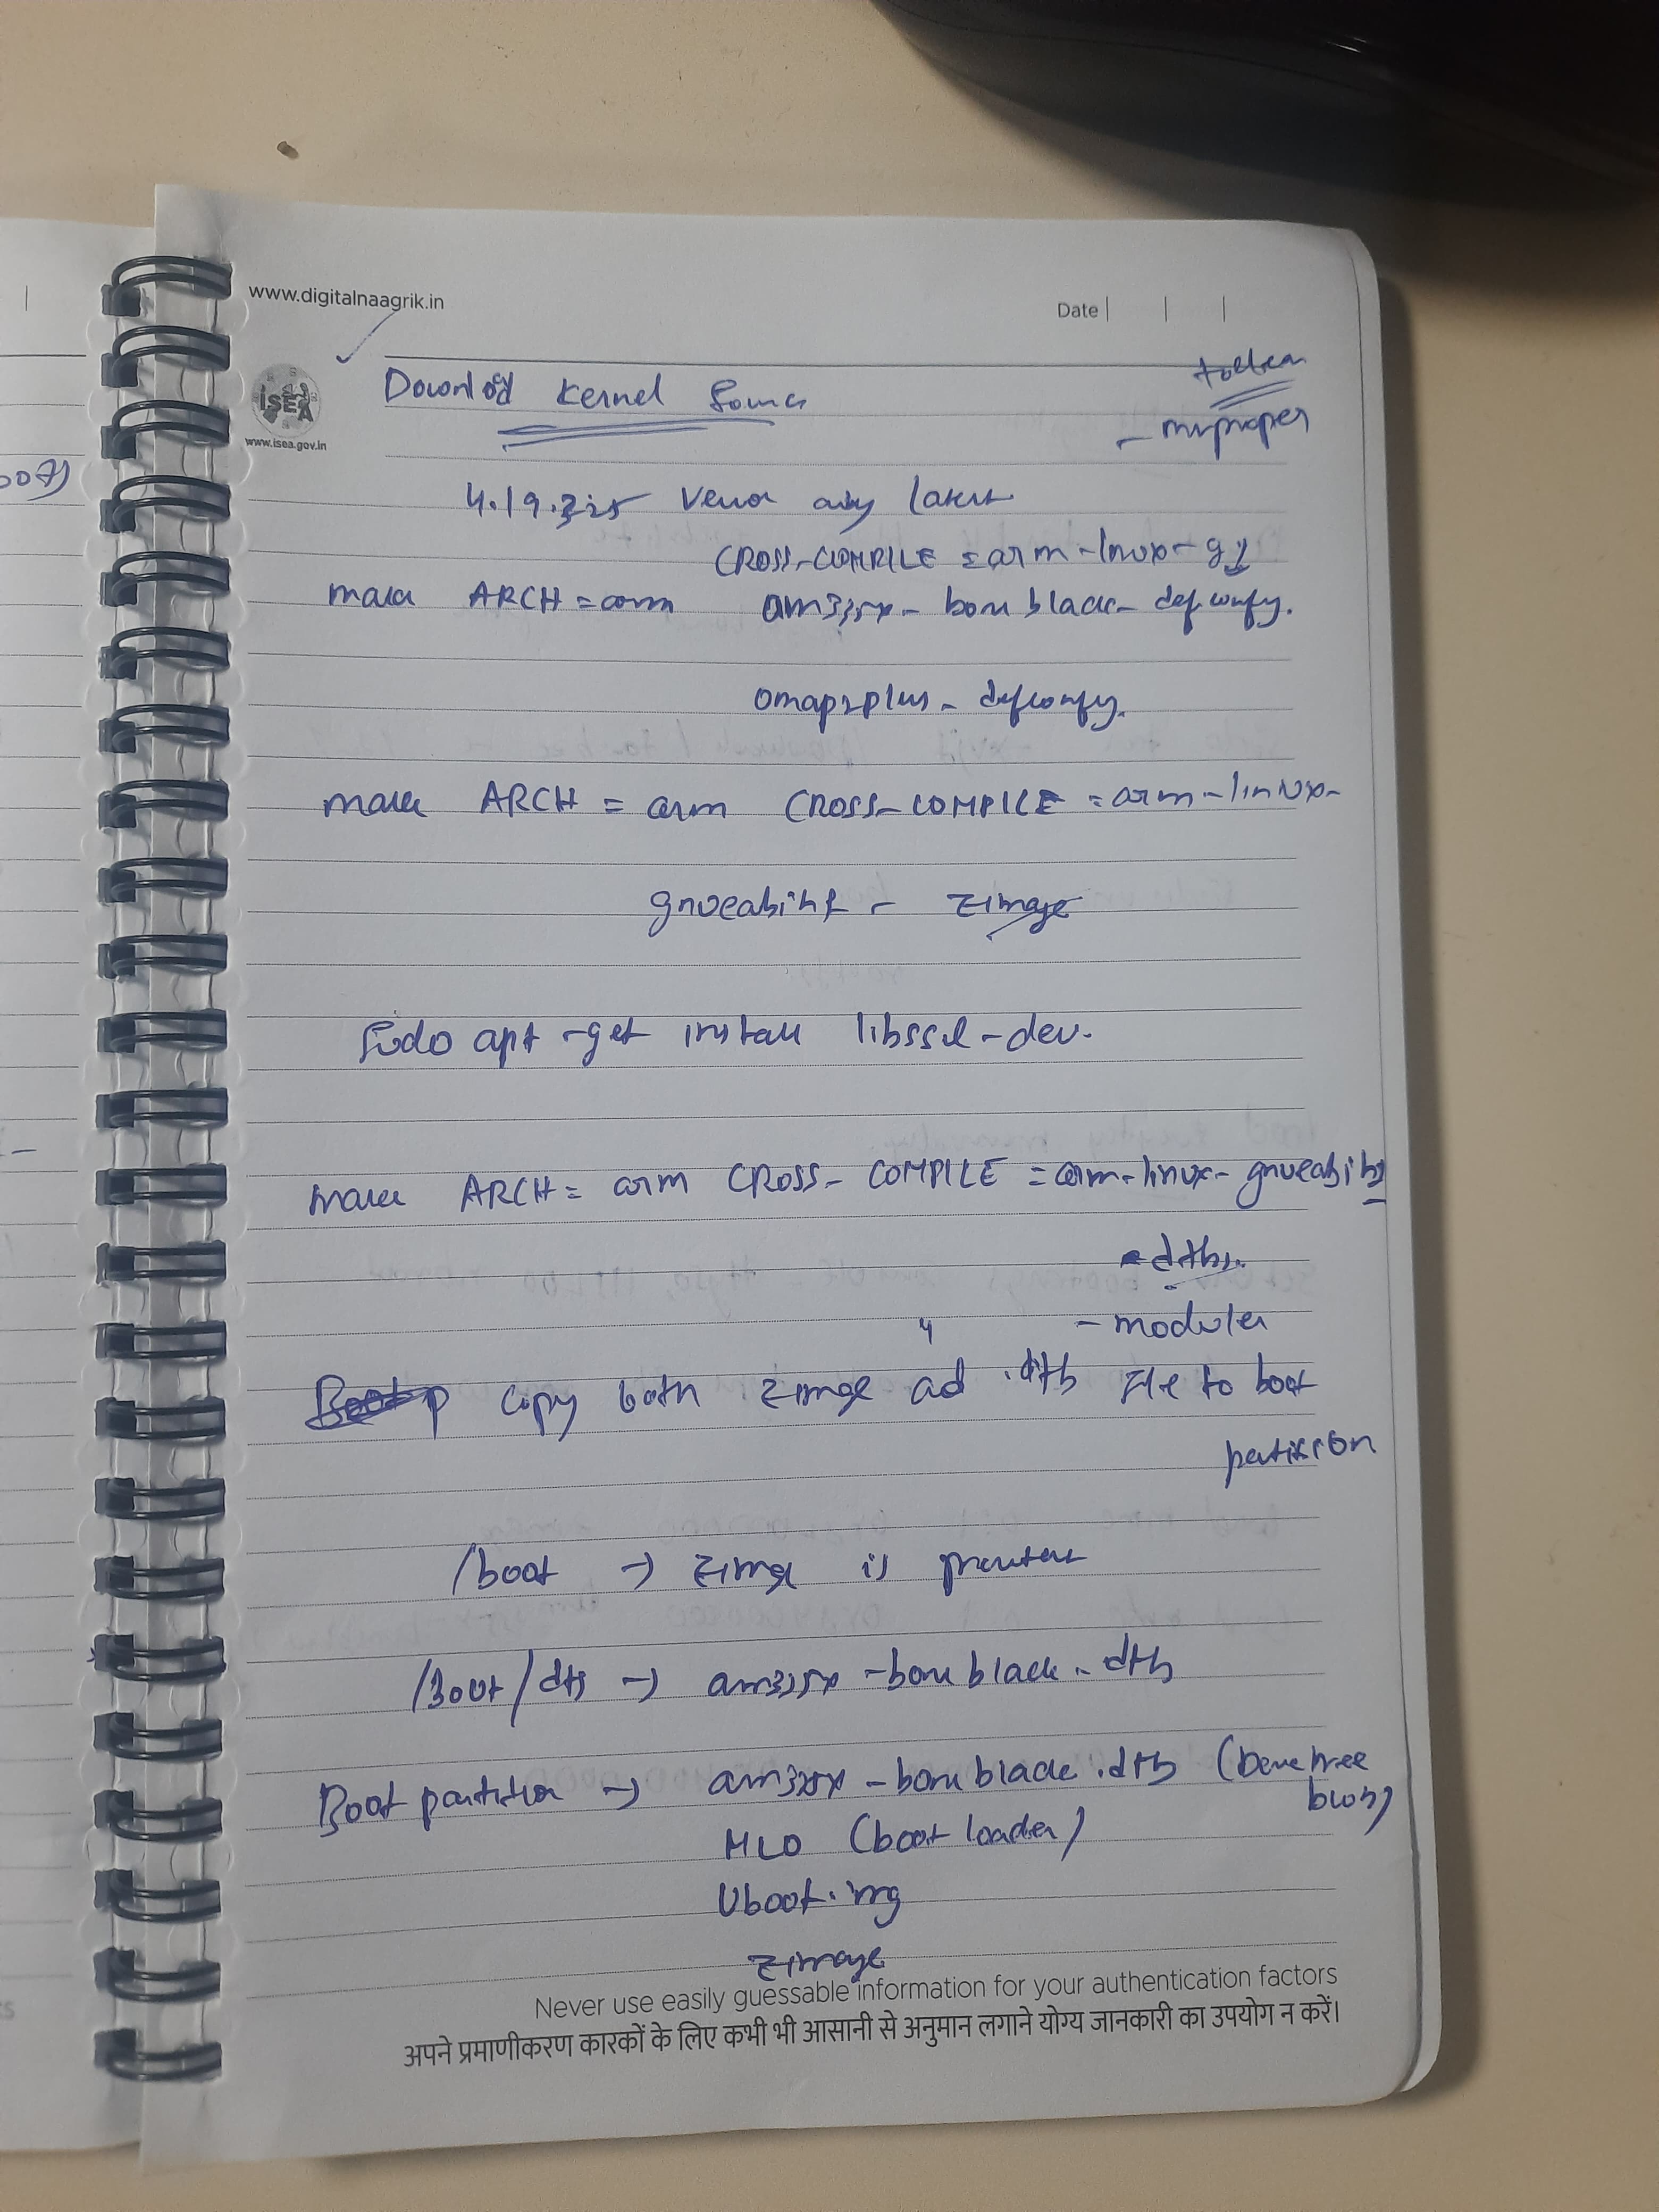 www.digitalnaagrik.in
Date
ISEA
www.isea.gov.in
Download Kernel Source
- mrproper
4.19.325 any latest
CROSS_COMPILE = arm-linux-g
make ARCH=arm am335x-boneblack-defconfig.
omap2plus_defconfig.
make ARCH = arm CROSS_COMPILE = arm-linux-
gnueabihf- zImage
Sudo apt-get install libssl-dev.
make ARCH= arm CROSS_COMPILE = arm-linux-gnueabihf
- dtbs.
" - modules
copy both zImage ad .dtb file to boot
partition
/boot -> zImage is present
/Boot/dtb -> am335x-boneblack.dtb
Boot partition -> am335x-boneblack.dtb (Device tree
blob)
MLO (boot loader)
Uboot.img
zImage
Never use easily guessable information for your authentication factors
अपने प्रमाणीकरण कारकों के लिए कभी भी आसानी से अनुमान लगाने योग्य जानकारी का उपयोग न करें।